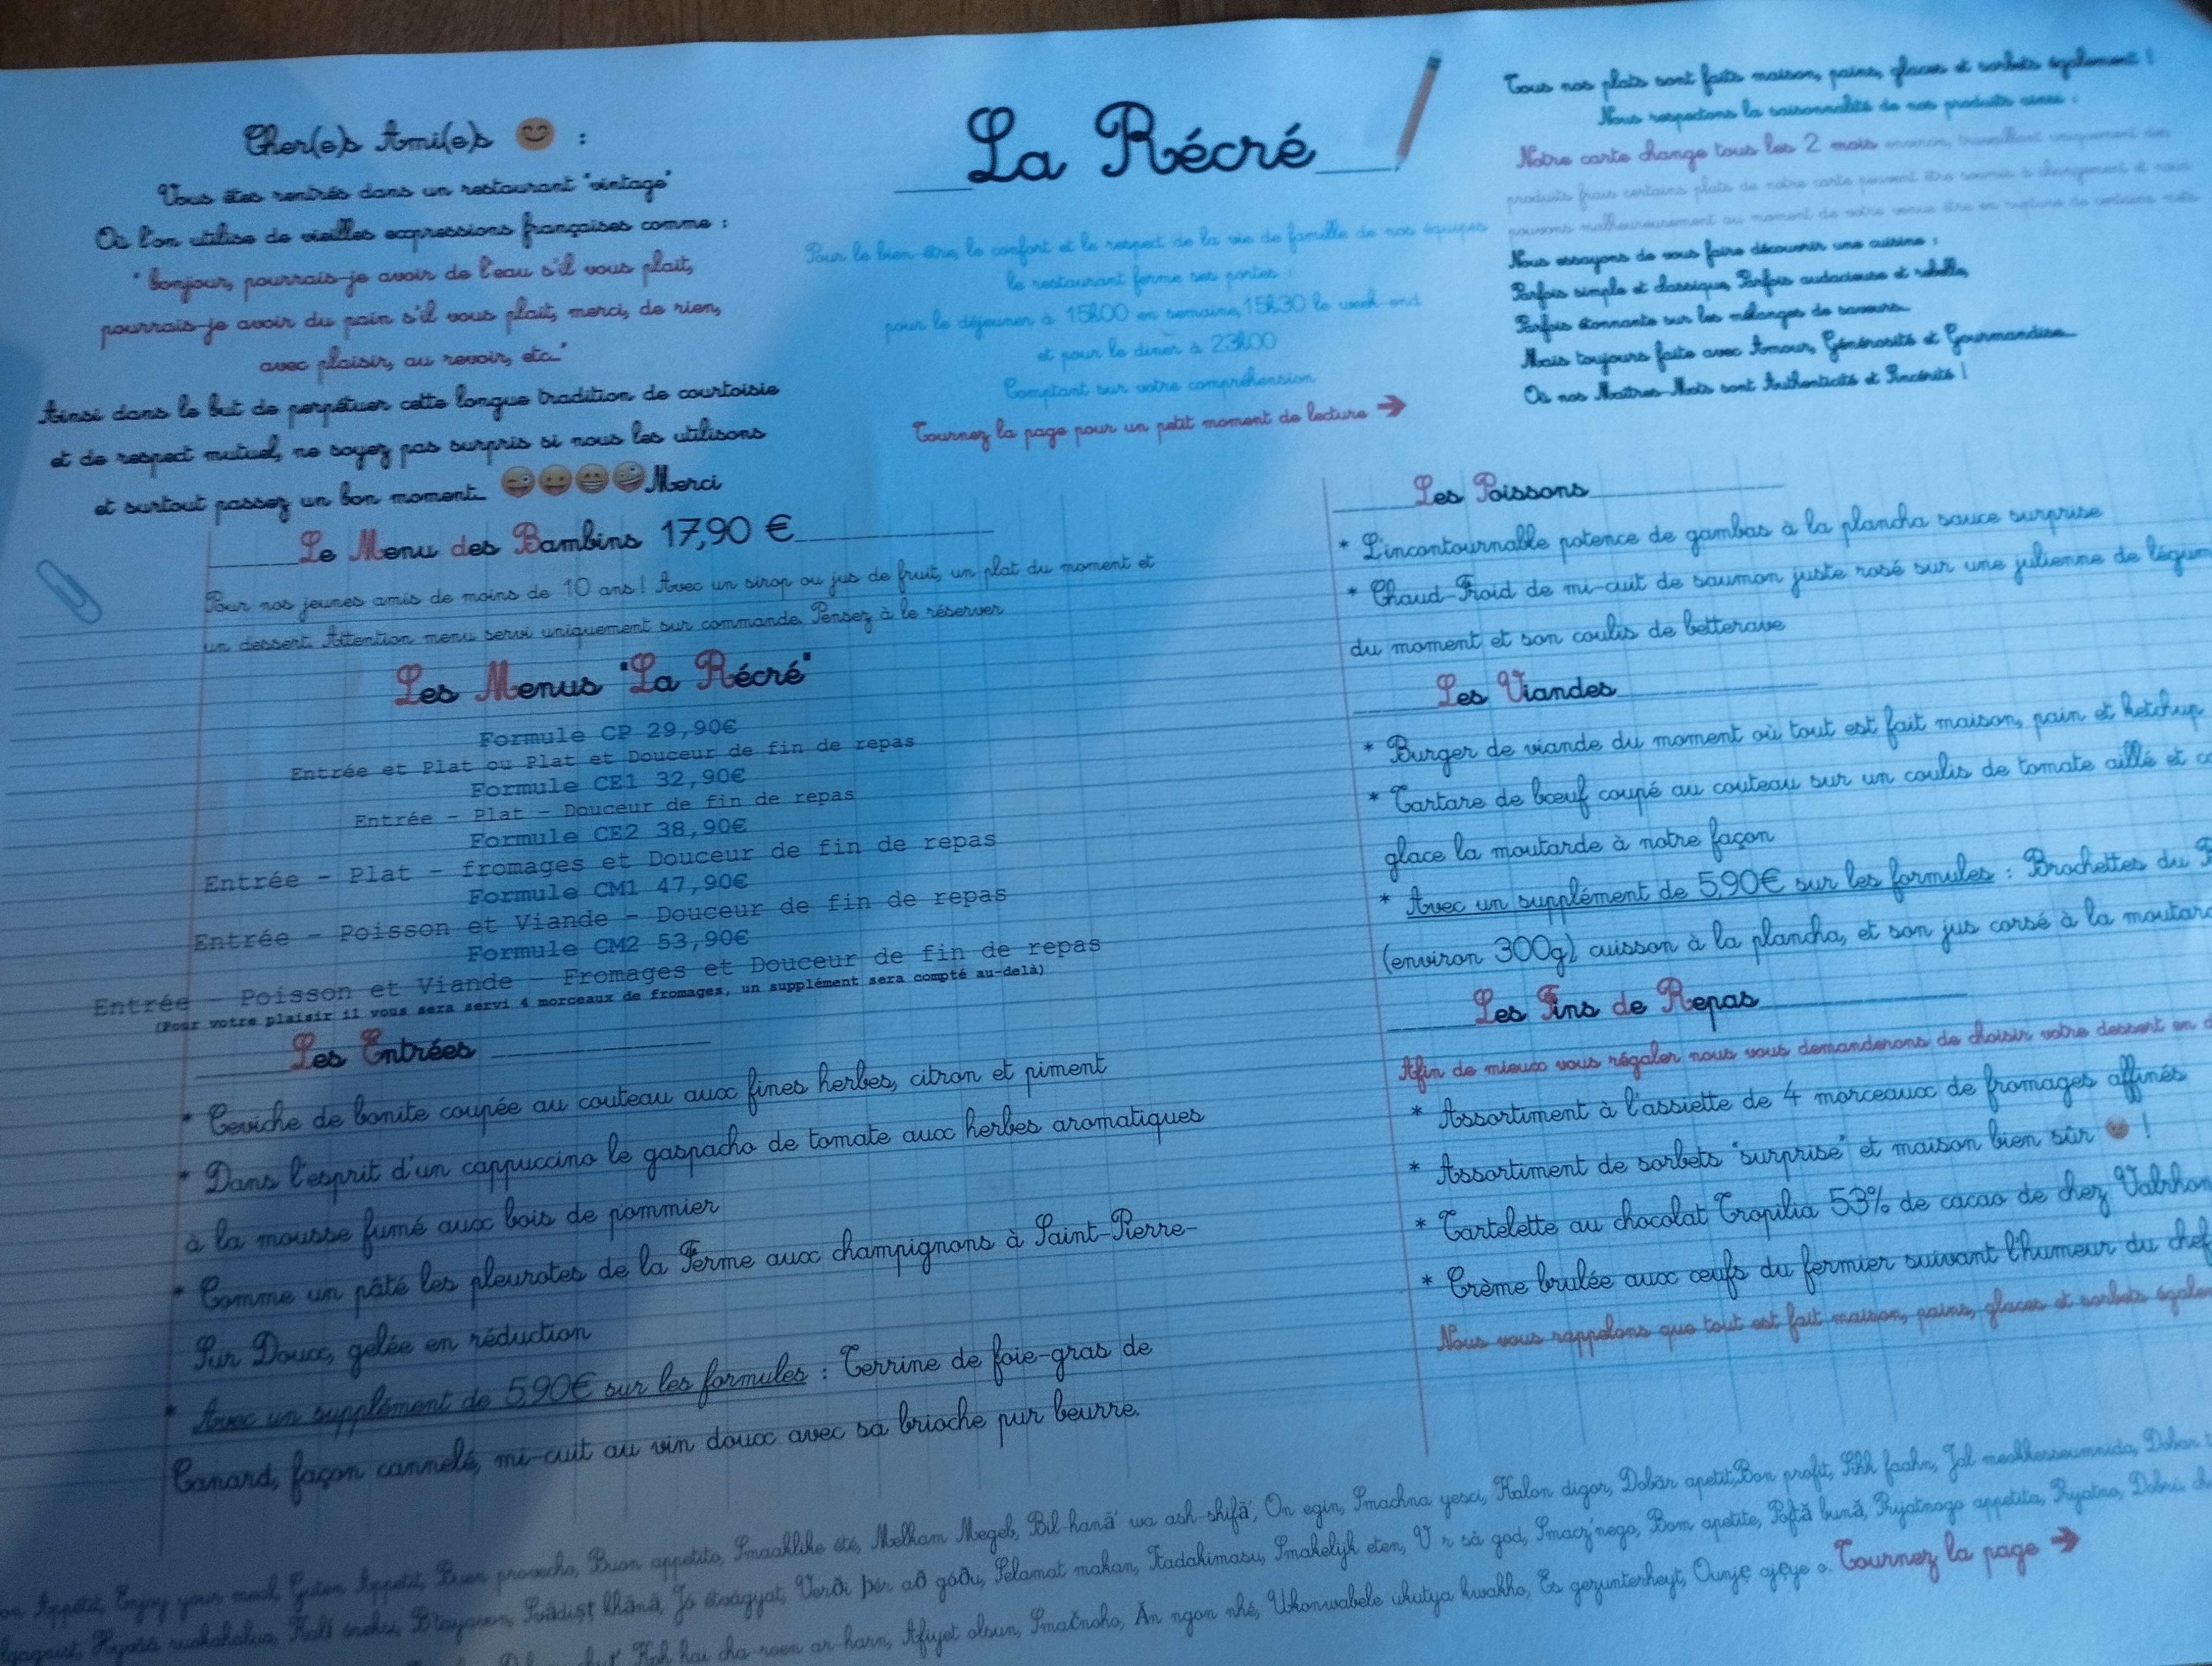 Cher(e)s Ami(e)s 😊 :
Vous êtes rentrés dans un restaurant "vintage"
Où l'on utilise de vieilles expressions françaises comme :
"bonjour, pourrais-je avoir de l'eau s'il vous plait,
pourrais-je avoir du pain s'il vous plait, merci, de rien,
avec plaisir, au revoir, etc..."
Ainsi dans le but de perpétuer cette longue tradition de courtoisie
et de respect mutuel, ne soyez pas surpris si nous les utilisons
et surtout passez un bon moment... 😜😛😁🤪Merci
La Récré
Pour le bien-être, le confort et le respect de la vie de famille de nos équipes
le restaurant ferme ses portes :
pour le déjeuner à 15h00 en semaine, 15h30 le week-end
et pour le dîner à 23h00
Comptant sur votre compréhension
Tournez la page pour un petit moment de lecture ➔
Tous nos plats sont faits maison, pains, glaces et sorbets également !
Nous respectons la saisonnalité de nos produits ainsi :
Notre carte change tous les 2 mois environ, travaillant uniquement des
produits frais certains plats de notre carte peuvent être soumis à changement et nous
pouvons malheureusement au moment de votre venue être en rupture de certains mets
Nous essayons de vous faire découvrir une cuisine :
Parfois simple et classique, Parfois audacieuse et rebelle,
Parfois étonnante sur les mélanges de saveurs...
Mais toujours faite avec Amour, Générosité et Gourmandise...
Où nos Maîtres-Mots sont Authenticité et Sincérité !
Le Menu des Bambins 17,90 €
Pour nos jeunes amis de moins de 10 ans ! Avec un sirop ou jus de fruit, un plat du moment et
un dessert. Attention menu servi uniquement sur commande. Pensez à le réserver
Les Menus "La Récré"
Formule CP 29,90€
Entrée et Plat ou Plat et Douceur de fin de repas
Formule CE1 32,90€
Entrée - Plat - Douceur de fin de repas
Formule CE2 38,90€
Entrée - Plat - fromages et Douceur de fin de repas
Formule CM1 47,90€
Entrée - Poisson et Viande - Douceur de fin de repas
Formule CM2 53,90€
Entrée - Poisson et Viande - Fromages et Douceur de fin de repas
(Pour votre plaisir il vous sera servi 4 morceaux de fromages, un supplément sera compté au-delà)
Les Entrées
* Ceviche de bonite coupée au couteau aux fines herbes, citron et piment
* Dans l'esprit d'un cappuccino le gaspacho de tomate aux herbes aromatiques
à la mousse fumé aux bois de pommier
* Comme un pâté les pleurotes de la Ferme aux champignons à Saint-Pierre-
Sur Doux, gelée en réduction
* Avec un supplément de 5,90€ sur les formules : Terrine de foie-gras de
Canard, façon cannelé, mi-cuit au vin doux avec sa brioche pur beurre.
Les Poissons
* L'incontournable potence de gambas à la plancha sauce surprise
* Chaud-Froid de mi-cuit de saumon juste rosé sur une julienne de légum
du moment et son coulis de betterave
Les Viandes
* Burger de viande du moment où tout est fait maison, pain et ketchup
* Tartare de bœuf coupé au couteau sur un coulis de tomate aillé et
glace la moutarde à notre façon
* Avec un supplément de 5,90€ sur les formules : Brochettes du
(environ 300g) cuisson à la plancha, et son jus corsé à la moutard
Les Fins de Repas
Afin de mieux vous régaler nous vous demanderons de choisir votre dessert en
* Assortiment à l'assiette de 4 morceaux de fromages affinés
* Assortiment de sorbets "surprise" et maison bien sûr 😊 !
* Tartelette au chocolat Tropilia 53% de cacao de chez Valrhon
* Crème brulée aux œufs du fermier suivant l'humeur du chef
Nous vous rappelons que tout est fait maison, pains, glaces et sorbets égalem
Appétit, Enjoy your meal, Guten Appetit, Buen provecho, Buon appetito, Smaaklike ete, Melkam Megeb, Bil-hanā' wa ash-shifā', On egin, Smachna yesci, Kalon digor, Dobăr apetit, Bon profit, Sihk faahn, Jal meokkesseumnida, Dobar
Jó étvágyat, Verði þér að góðu, Selamat makan, Itadakimasu, Smakelijk eten, V r så god, Smacz'nego, Bom apetite, Poftă bună, Prijatnogo appetita, Prijatno,
Afiyet olsun, Smačnoho, Ăn ngon nhé, Ukonwabele ukutya kwakho, Es gezunterheyt, Ounje ajeye o. Tournez la page ➔